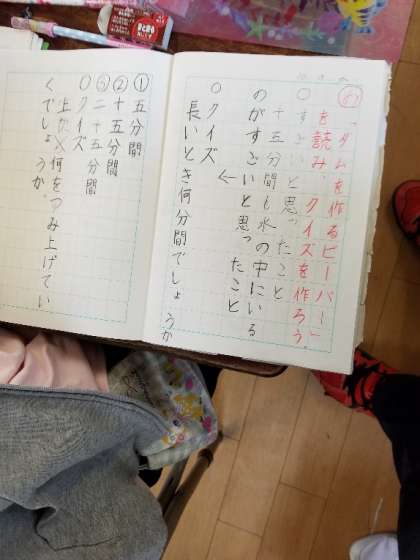 め
「ダムを作るビーバー」
を読み、クイズを作ろう。
○すごいと思ったこと
十五分間も水の中にいる
のがすごいと思ったこと
↓
○クイズ
長いとき何分間でしょうか
①五分間
②十五分間
③二十五分間
○クイズ
何をつみ上げてい
くでしょうか。